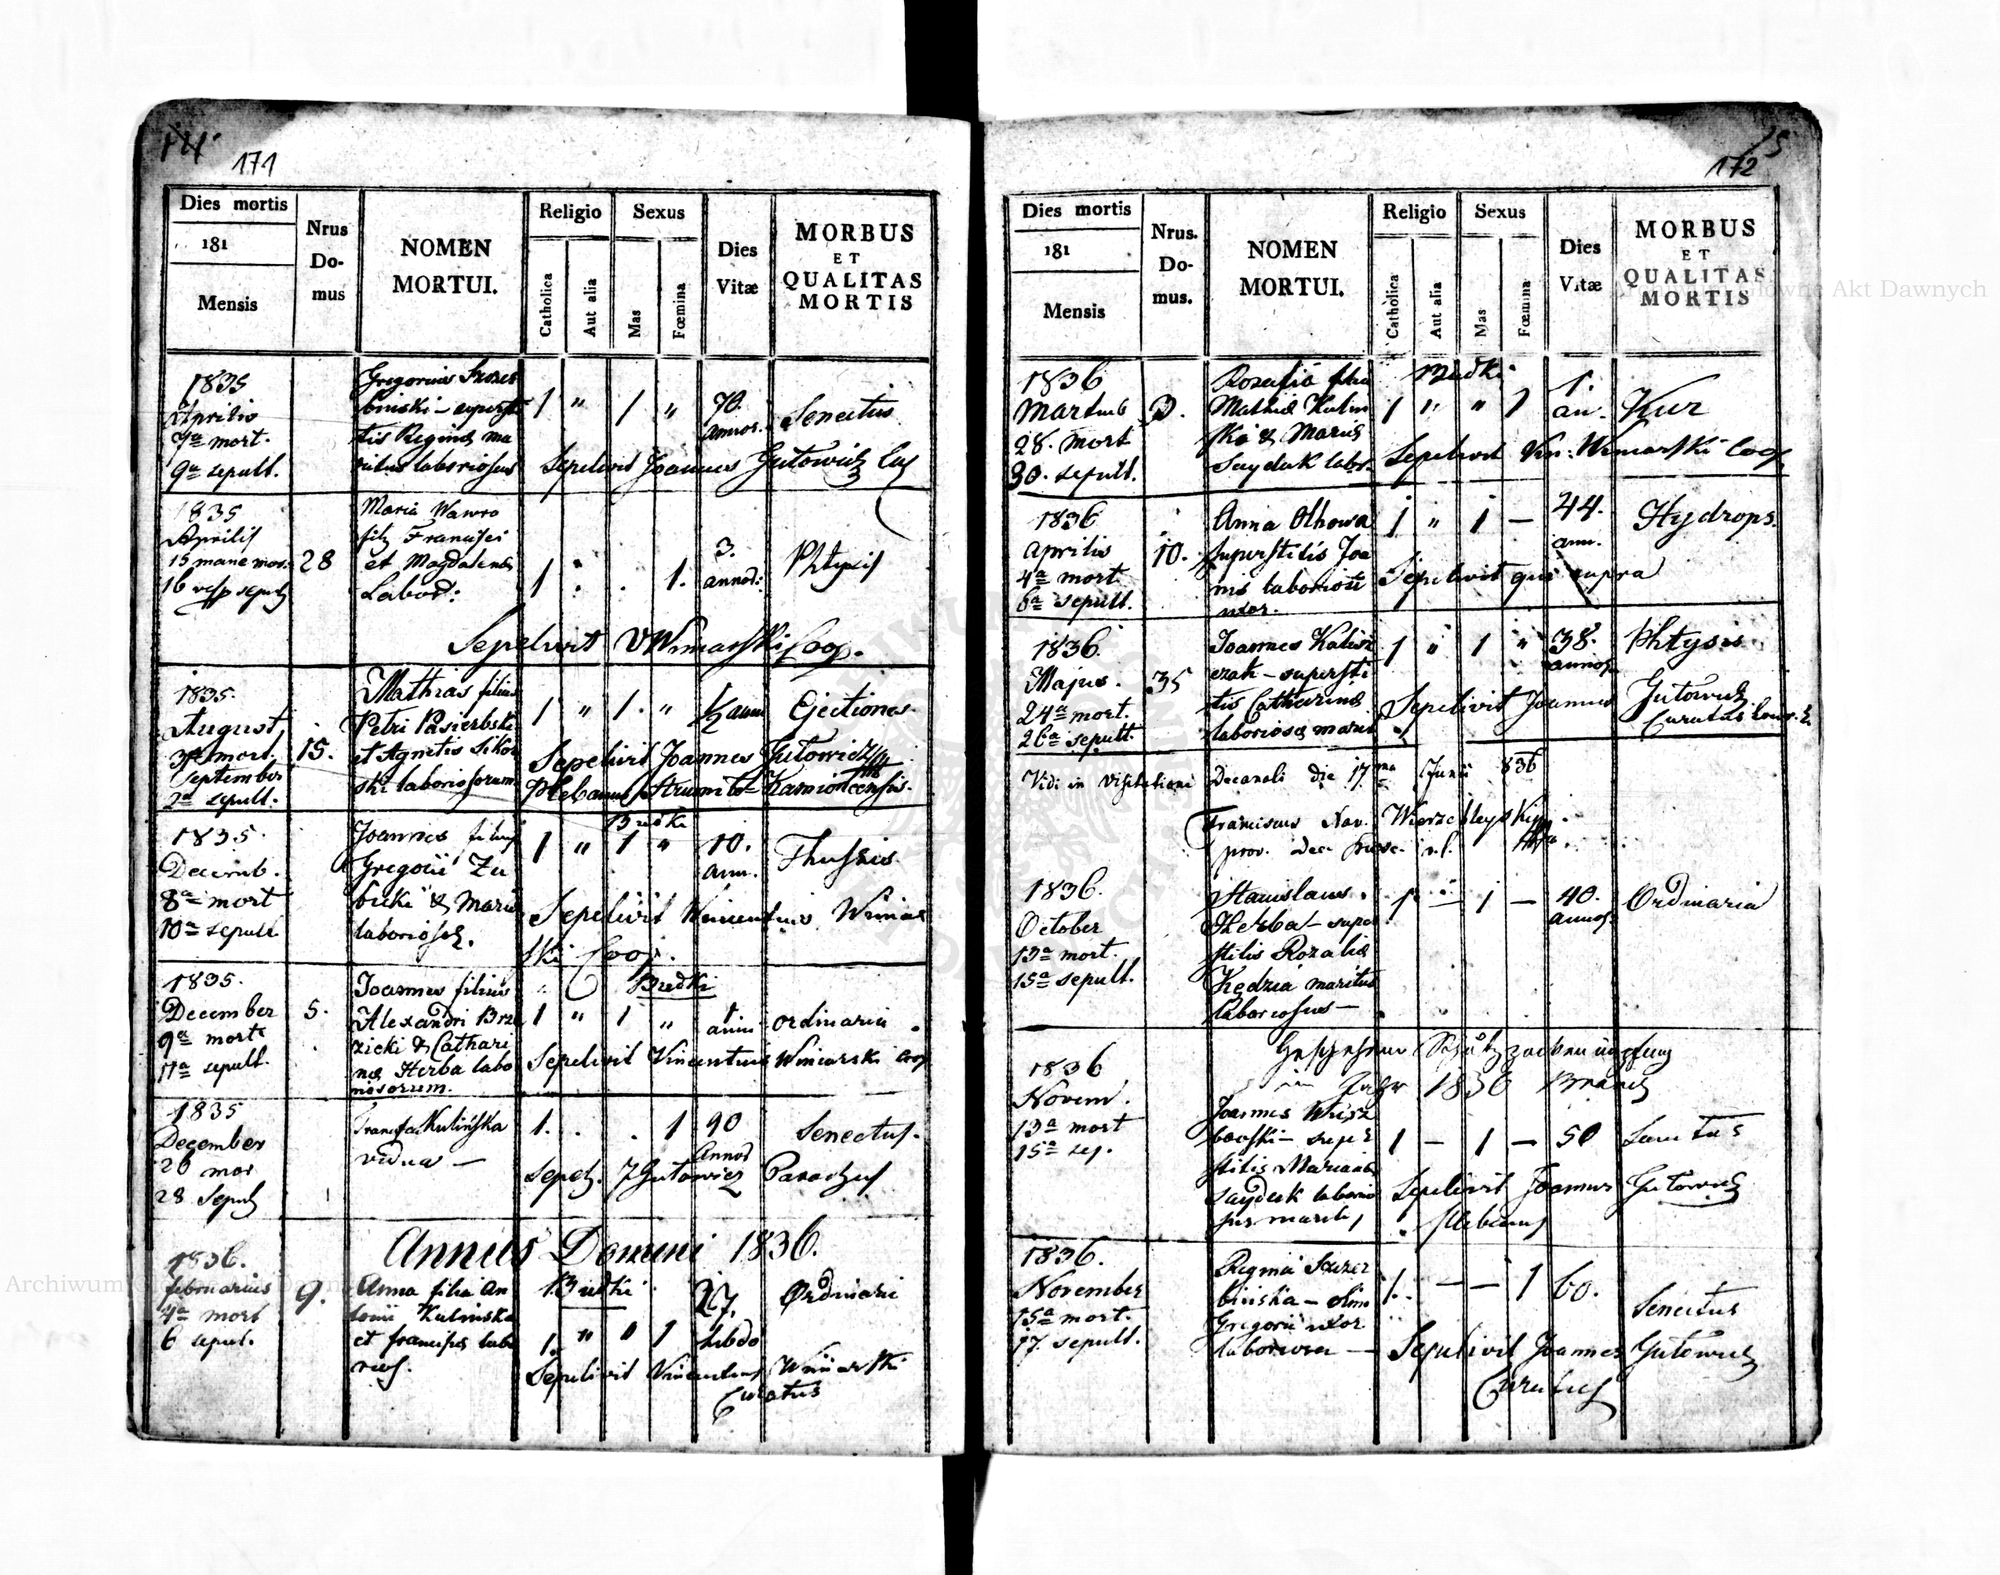 14
171
Dies mortis
181
Mensis
Nrus
Do-
mus
NOMEN
MORTUI.
Religio
Catholica
Aut alia
Sexus
Mas
Fœmina
Dies
Vitæ
MORBUS
ET
QUALITAS
MORTIS
1835
Aprilis
7ª mort.
9ª sepult.
Gregorius
binski – supersti
tis Reginæ ma
ritus laboriosus
1 " 1 "
70.
annor.
Senectus
Sepelivit Joannes Gutowicz
1835
Aprilis
15 mane mor.
16 vesp sepul
28
Maria Wawro
filia Francisci
et Magdalenæ
Labor:
1 . . 1.
3.
annor:
Phtysis
Sepelivit V Winiarski Coop.
1835.
August
mort.
September
2ª sepult.
15.
Mathias filius
Petri Pasierbski
et Agnetis Sikor
ski laboriosorum
1 " 1. "
1/2 anni
Ejectiones.
Sepelivit Joannes Gutowicz
Plebanus Strumilo-Kamioncensis.
1835.
Decemb.
8ª mort
10ª sepult
Joannes filius
Gregorii Zu
bicki & Mariæ
laboriosæ.
Budki
1 " 1 "
10.
ann.
Thussis
Sepelivit Vincentius Winiar
ski Coop.
1835.
December
9ª mort
11ª sepult.
5.
Joannes filius
Alexandri Brze
zicki & Cathari
næ Herba labo
riosorum.
Budki
1 " 1 "
1
anni
ordinaria
Sepelivit Vincentius Winiarski Coop
1835
December
26 mor
28 Sepul
Kulińska
vidua —
1. . . 1
90
Annor
Senectus.
Sepel. J Gutowicz Parochus
Annus Domini 1836.
1836.
februarius
4ª mort
6 sepul.
9.
Anna filia An
tonii Kulinska
et
Budki
1. " " 1
27.
hebdo
Ordinari
Sepelivit Vincentius Winiarski
Curatus
15
172
Dies mortis
181
Mensis
Nrus.
Do-
mus.
NOMEN
MORTUI.
Religio
Catholica
Aut alia
Sexus
Mas
Fœmina
Dies
Vitæ
MORBUS
ET
QUALITAS
MORTIS
1836
Martius
28. mort
30. sepult.
Rozalia filia
Mathiæ Kulin
ski & Mariæ
Saydak labor.
Budki
1 " " 1
1.
an.
Kur
Sepelivit Vin: Winiarski Coop
1836
Aprilis
4ª mort
6ª sepult.
10.
Anna Olhowa
superstitis Joa
nis laboriosi
uxor.
1 " 1 —
44.
ann.
Hydrops.
Sepelivit qui supra
1836.
Majus.
24ª mort.
26ª sepult.
35
Joannes Kalisz
czak – supersti
tis Catharinæ
laboriosæ
1 " 1 "
38.
annor
Phtysis
Sepelivit Joannes Gutowicz
Curatus
Vidi in Visitatione Decanali die 17ma Junii 836
Franciscus Xav. Wierzchleyski
prov.
1836.
October
13ª mort.
15ª sepult.
Stanislaus
Herba – super
stitis Rozaliæ
Kędzia maritus
laboriosus —
1 — 1 —
40.
annor.
Ordinaria
im Jahr 1836
1836
Novem.
13ª mort
15ª sep.
Joannes
super
stitis Mariannæ
Saydak laborio
sus
1 — 1 — 50
Sepelivit Joannes Gutowicz
Plebanus
1836.
November
15ª mort.
17. sepult.
Regina
binska – olim
Gregorii uxor
laboriosa —
1. — — 1 60.
Senectus
Sepelivit Joannes Gutowicz
Curatus
Archiwum Główne Akt Dawnych
Archiwum Główne Akt Dawnych